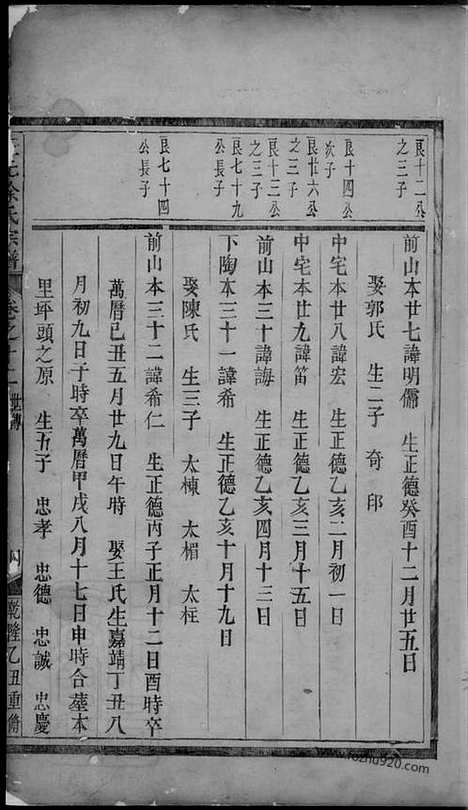 良十二公
之三子
良十四公
次子
良廿六公
之三子
良十三公
之三子
良七十九
公長子
良七十四
公長子
前山本廿七諱明儒 生正德癸酉十二月廿五日
娶郭氏 生二子 奇 印
中宅本廿八諱宏 生正德乙亥二月初一日
中宅本廿九諱笛 生正德乙亥三月十五日
前山本三十諱誨 生正德乙亥四月十三日
下陶本三十一諱希 生正德乙亥十月十九日
娶陳氏 生三子 太棟 太楣 太枉
前山本三十二諱希仁 生正德丙子正月十二日酉時卒
萬曆己丑五月廿九日午時 娶王氏生嘉靖丁丑八
月初九日子時卒萬曆甲戌八月十七日申時合塟本
里坪頭之原 生五子 忠孝 忠德 忠誠 忠慶
徐氏宗譜 卷之十二 世傳 乾隆乙丑重脩
tuzhu920.com